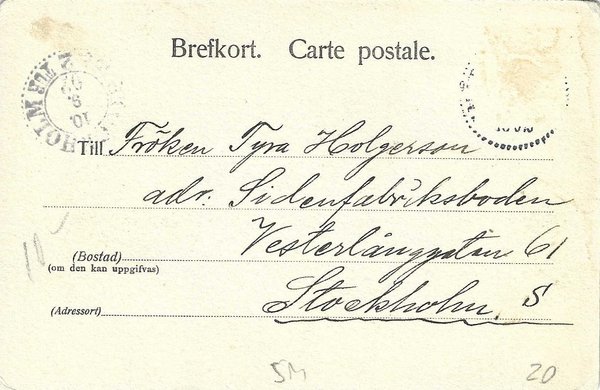 Brefkort. Carte postale.
Till Fröken Tyra Holgerson
adr. Sidenfabriksboden
(Bostad) Vesterlånggatan 61
(om den kan uppgifvas)
(Adressort) Stockholm. S
10-
SM
20